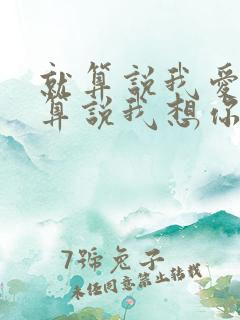 就算説我愛
算説我想你
7號兔子
未經同意禁止轉載